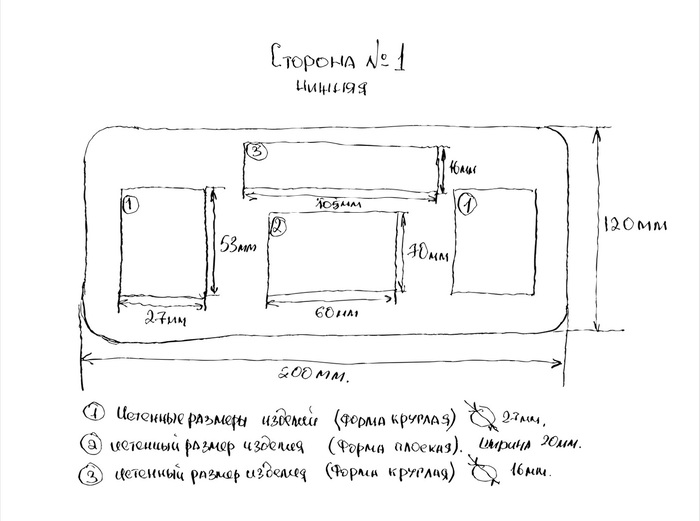 Сторона №1
нижняя
3
16мм
105мм
1
1
2
53мм
70мм
120мм
27мм
60мм
200мм.
1 Истенные размеры изделий (форма круглая) 27мм,
2 истенный размер изделия (форма плоская). ширина 20мм.
3 истенный размер изделия (форма круглая) 16мм.